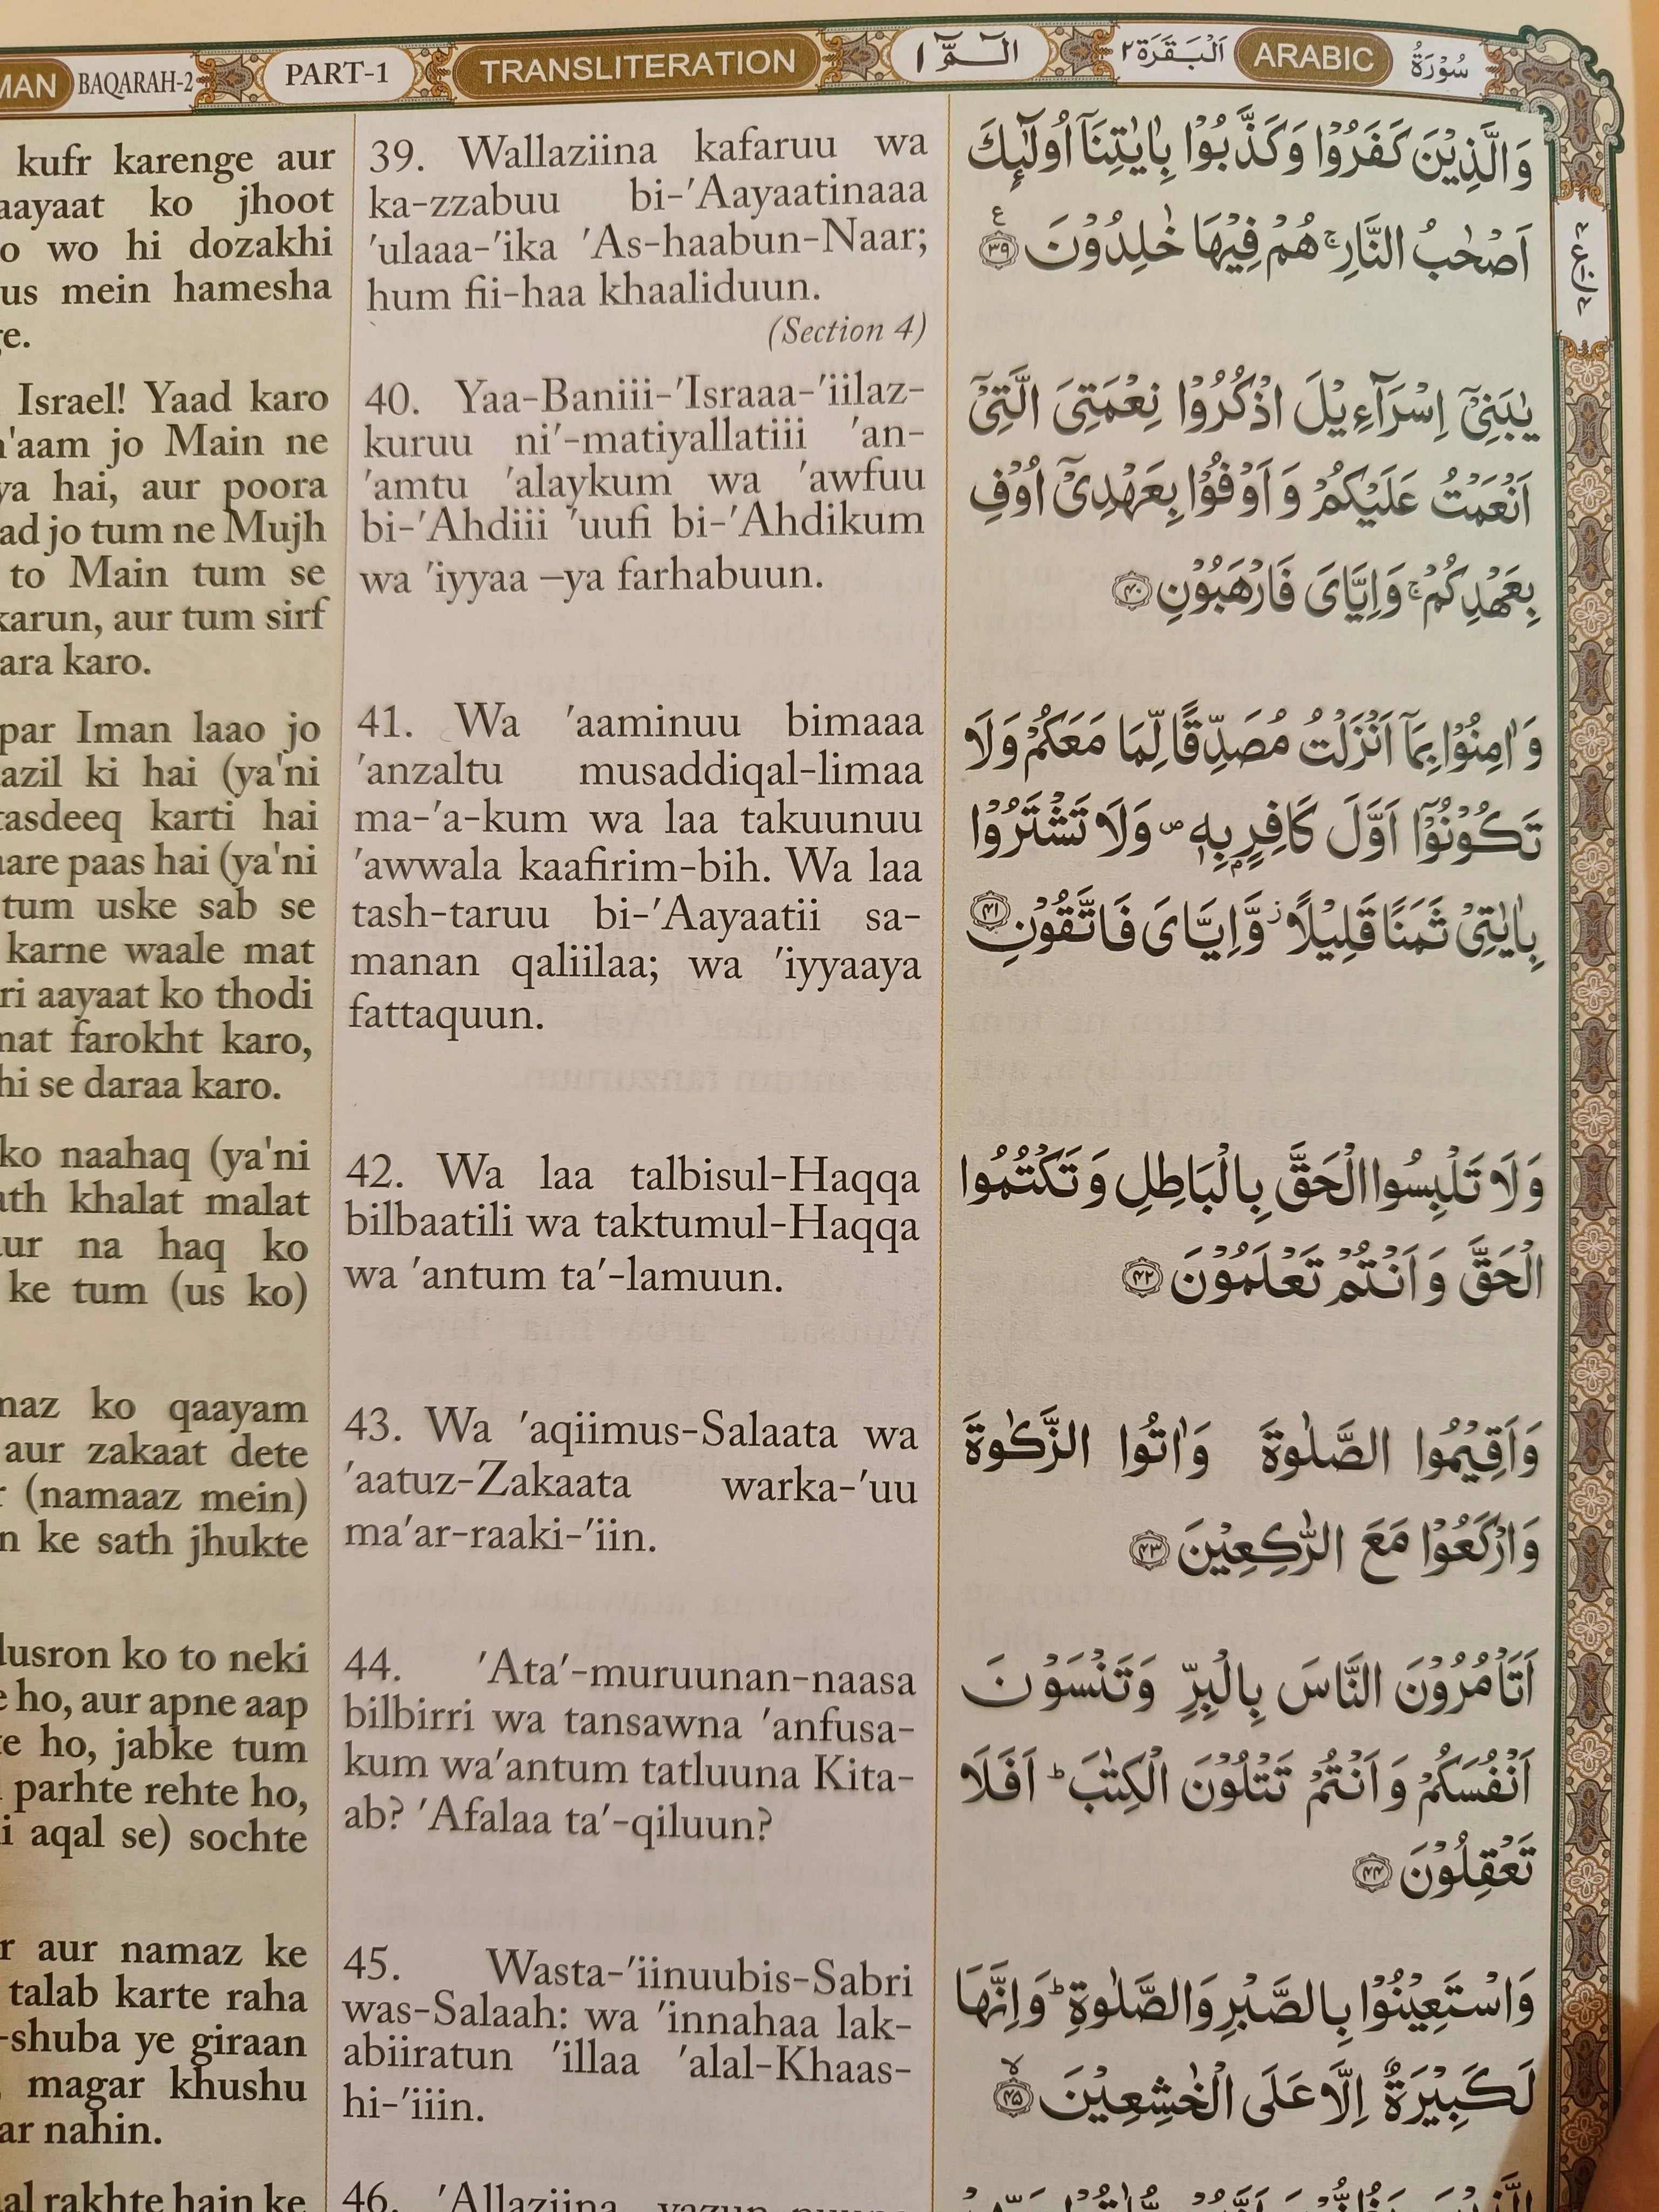 MAN BAQARAH-2 PART-1 TRANSLITERATION الٓمّٓ ١ اَلْبَقَرَة ٢ ARABIC سُوْرَةُ
kufr karenge aur
aayaat ko jhoot
wo hi dozakhi
us mein hamesha
Israel! Yaad karo
n'aam jo Main ne
ya hai, aur poora
ad jo tum ne Mujh
to Main tum se
karun, aur tum sirf
ara karo.
par Iman laao jo
azil ki hai (ya'ni
tasdeeq karti hai
aare paas hai (ya'ni
tum uske sab se
karne waale mat
ri aayaat ko thodi
mat farokht karo,
hi se daraa karo.
ko naahaq (ya'ni
ath khalat malat
ur na haq ko
ke tum (us ko)
maz ko qaayam
aur zakaat dete
r (namaaz mein)
n ke sath jhukte
dusron ko to neki
e ho, aur apne aap
te ho, jabke tum
parhte rehte ho,
i aqal se) sochte
r aur namaz ke
talab karte raha
-shuba ye giraan
magar khushu
ar nahin.
al rakhte hain ke
39. Wallaziina kafaruu wa
ka-zzabuu bi-'Aayaatinaaa
'ulaaa-'ika 'As-haabun-Naar;
hum fii-haa khaaliduun.
(Section 4)
40. Yaa-Baniii-'Israaa-'iilaz-
kuruu ni'-matiyallatiii 'an-
'amtu 'alaykum wa 'awfuu
bi-'Ahdiii 'uufi bi-'Ahdikum
wa 'iyyaa –ya farhabuun.
41. Wa 'aaminuu bimaaa
'anzaltu musaddiqal-limaa
ma-'a-kum wa laa takuunuu
'awwala kaafirim-bih. Wa laa
tash-taruu bi-'Aayaatii sa-
manan qaliilaa; wa 'iyyaaya
fattaquun.
42. Wa laa talbisul-Haqqa
bilbaatili wa taktumul-Haqqa
wa 'antum ta'-lamuun.
43. Wa 'aqiimus-Salaata wa
'aatuz-Zakaata warka-'uu
ma'ar-raaki-'iin.
44. 'Ata'-muruunan-naasa
bilbirri wa tansawna 'anfusa-
kum wa'antum tatluuna Kita-
ab? 'Afalaa ta'-qiluun?
45. Wasta-'iinuubis-Sabri
was-Salaah: wa 'innahaa lak-
abiiratun 'illaa 'alal-Khaas-
hi-'iiin.
46. 'Allaziina
وَالَّذِيْنَ كَفَرُوْا وَكَذَّبُوْا بِاٰيٰتِنَآ اُولٰٓئِكَ
اَصْحٰبُ النَّارِ ۚ هُمْ فِيْهَا خٰلِدُوْنَ ۧ ﴿٣٩﴾
يٰبَنِيْٓ اِسْرَآءِيْلَ اذْكُرُوْا نِعْمَتِيَ الَّتِيْٓ
اَنْعَمْتُ عَلَيْكُمْ وَاَوْفُوْا بِعَهْدِيْٓ اُوْفِ
بِعَهْدِكُمْ ۚ وَاِيَّايَ فَارْهَبُوْنِ ﴿٤٠﴾
وَاٰمِنُوْا بِمَآ اَنْزَلْتُ مُصَدِّقًا لِّمَا مَعَكُمْ وَلَا
تَكُوْنُوْٓا اَوَّلَ كَافِرٍۭ بِهٖ ۠ وَلَا تَشْتَرُوْا
بِاٰيٰتِيْ ثَمَنًا قَلِيْلًا ۡ وَّاِيَّايَ فَاتَّقُوْنِ ﴿٤١﴾
وَلَا تَلْبِسُوا الْحَقَّ بِالْبَاطِلِ وَتَكْتُمُوا
الْحَقَّ وَاَنْتُمْ تَعْلَمُوْنَ ﴿٤٢﴾
وَاَقِيْمُوا الصَّلٰوةَ وَاٰتُوا الزَّكٰوةَ
وَارْكَعُوْا مَعَ الرّٰكِعِيْنَ ﴿٤٣﴾
اَتَاْمُرُوْنَ النَّاسَ بِالْبِرِّ وَتَنْسَوْنَ
اَنْفُسَكُمْ وَاَنْتُمْ تَتْلُوْنَ الْكِتٰبَ ؕ اَفَلَا
تَعْقِلُوْنَ ﴿٤٤﴾
وَاسْتَعِيْنُوْا بِالصَّبْرِ وَالصَّلٰوةِ ؕ وَاِنَّهَا
لَكَبِيْرَةٌ اِلَّا عَلَى الْخٰشِعِيْنَ ۙ ﴿٤٥﴾